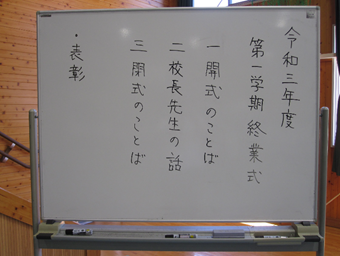 令和三年度
第一学期終業式
一開式のことば
二校長先生の話
三閉式のことば
・表彰